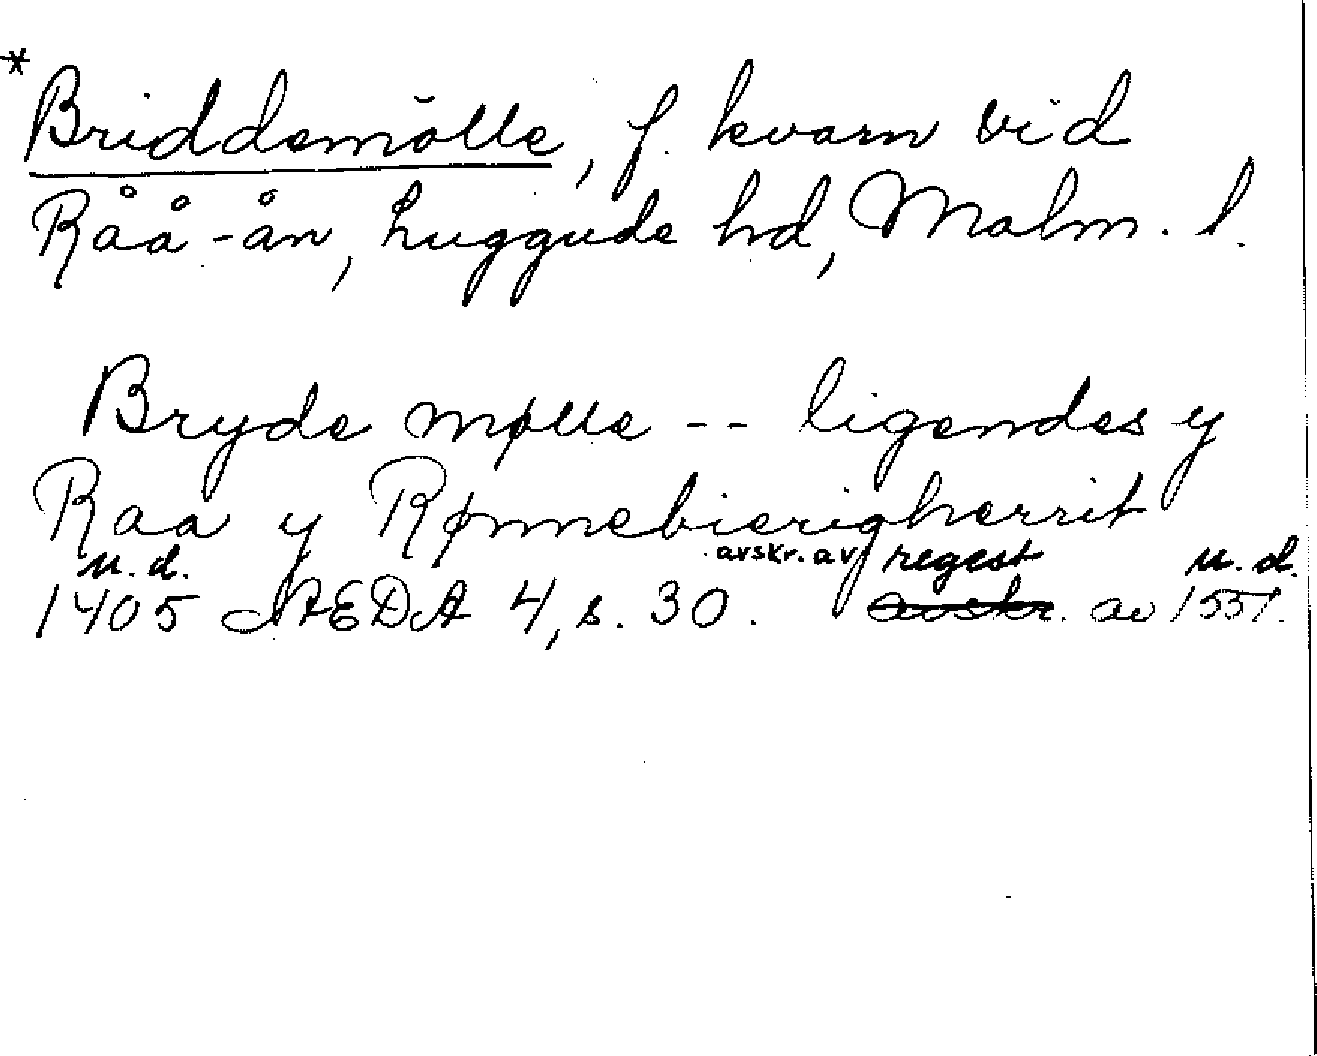 *
Briddemölle, f. kvarn vid
Råå-ån, Luggude hd, Malm. l.
Bryde mølle -- ligendes y
Raa y Rønnebierigherrit
u.d. avskr. av regest u.d.
1405 ÆDA 4, s. 30. avskr. av 1551.